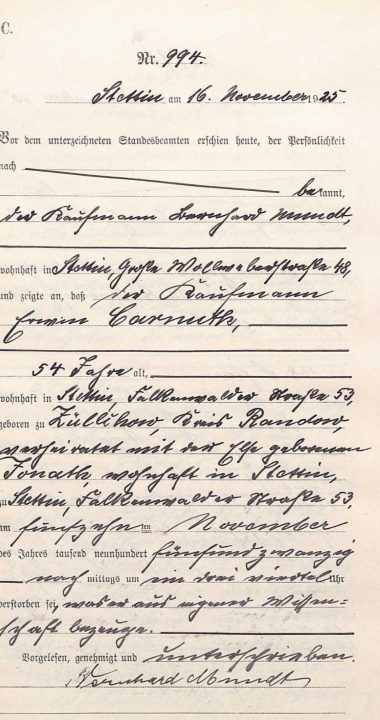 C.
Nr. 994.
Stettin am 16. November 1925.
Vor dem unterzeichneten Standesbeamten erschien heute, der Persönlichkeit
nach
bekannt,
der Kaufmann Bernhard Mundt,
wohnhaft in Stettin, Große Wollweberstraße 48,
und zeigte an, daß der Kaufmann
Erwin Carnuth,
54 Jahre alt,
wohnhaft in Stettin, Falkenwalder Straße 53,
geboren zu Züllchow, Kreis Randow,
verheiratet mit der Else geborenen
Jonath, wohnhaft in Stettin,
zu Stettin, Falkenwalder Straße 53,
am fünfzehnten November
des Jahres tausend neunhundert fünfundzwanzig
nachmittags um ein drei viertel Uhr
verstorben sei, was er aus eigener Wissen=
schaft bezeuge.
Vorgelesen, genehmigt und unterschrieben.
Bernhard Mundt